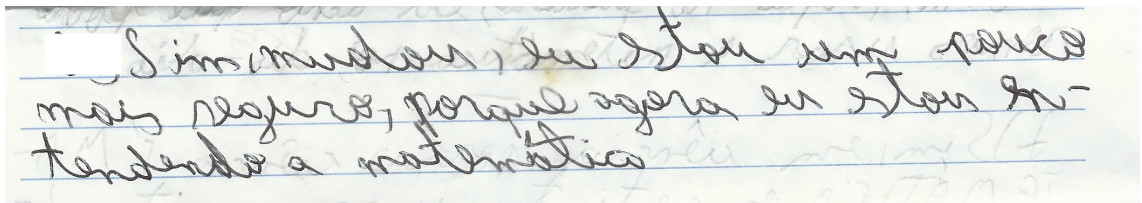 Sim, mudou, eu estou um pouco
mais seguro, porque agora eu estou en-
tendendo a matemática